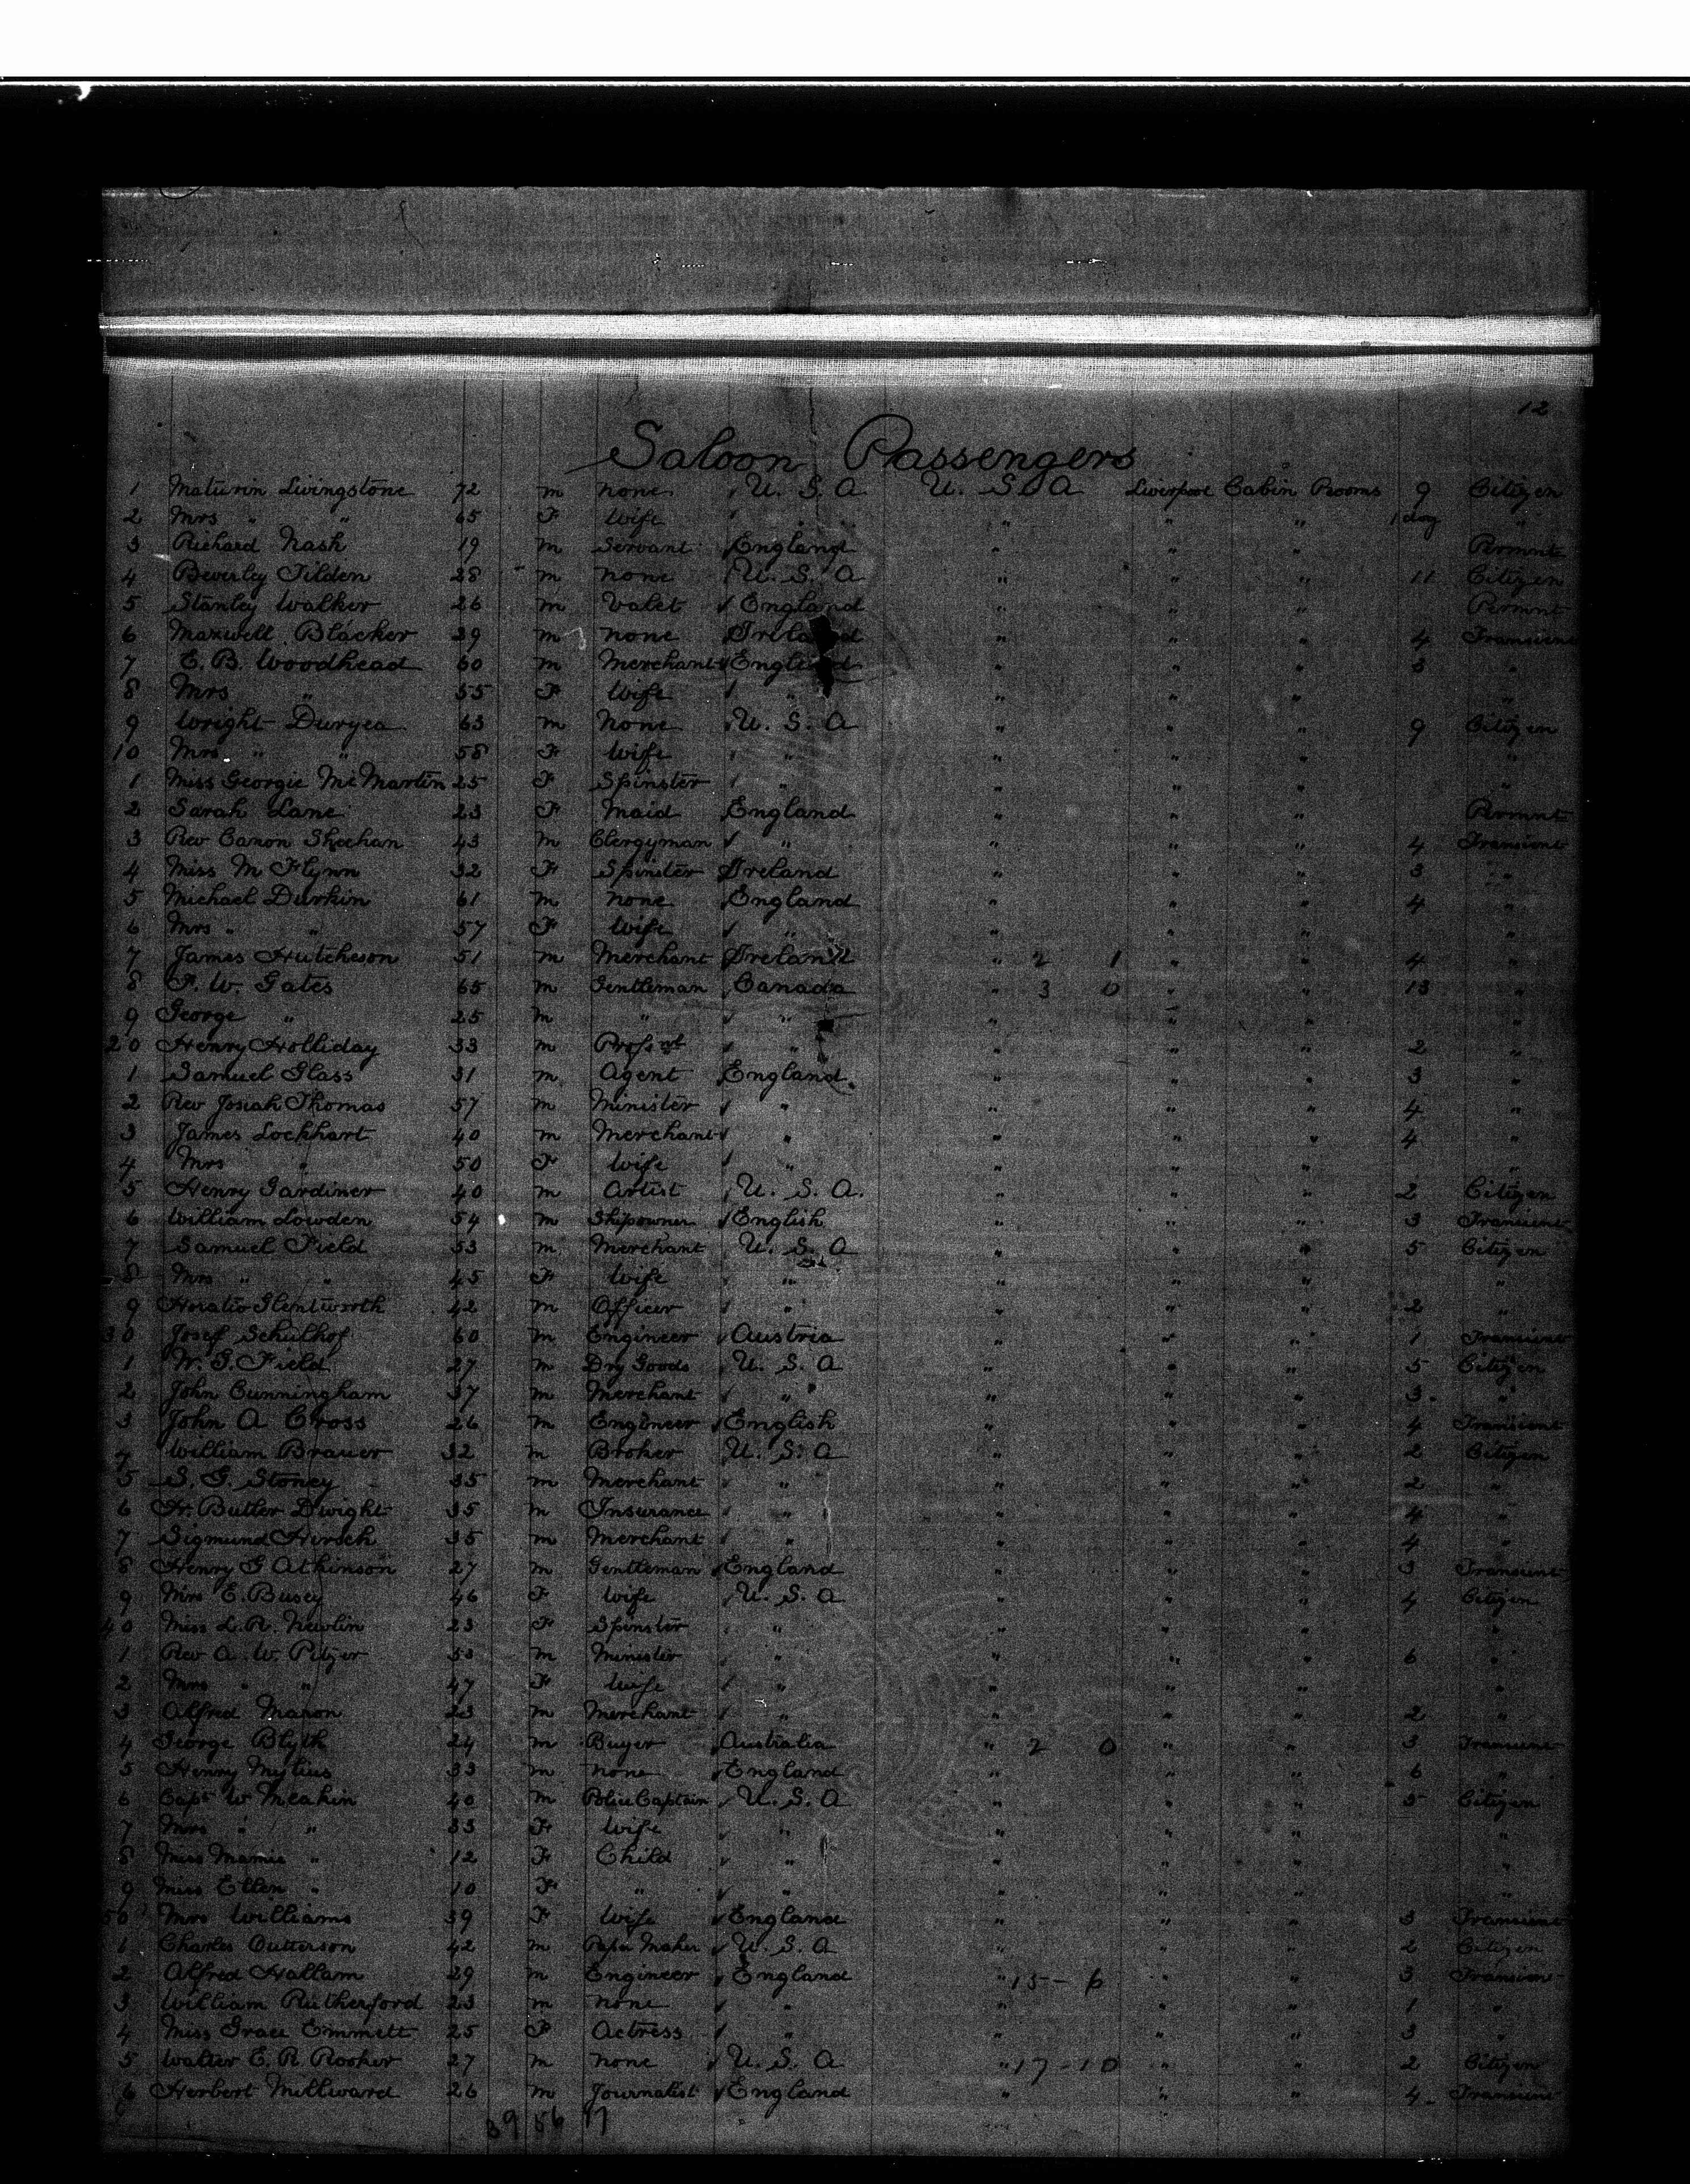 12
Saloon Passengers
1 Maturin Livingstone 72 m none U. S. A U. S. A Liverpool Cabin Rooms 9 Citizen
2 Mrs " " 65 F Wife " " " " 1 dog "
3 Richard Nash 19 m Servant England " " " Permnt
4 Beverley Tilden 28 m none U. S. A " " " 11 Citizen
5 Stanley Walker 26 m Valet England " " " Permnt
6 Maxwell Blacker 39 m none Ireland " " " 4 Transient
7 E. B. Woodhead 60 m Merchant England " " " 3 "
8 Mrs " 55 F Wife " " " " "
9 Wright Duryea 63 m None U. S. A " " " 9 Citizen
10 Mrs " " 58 F Wife " " " " "
1 Miss Georgie McMartin 25 F Spinster " " " " "
2 Sarah Lane 23 F Maid England " " " Permnt
3 Rev Canon Sheehan 43 m Clergyman " " " " 4 Transient
4 Miss M Flynn 32 F Spinster Ireland " " " 3 "
5 Michael Durkin 61 m none England " " " 4 "
6 Mrs " " 57 F Wife " " " " "
7 James Hutcheson 51 m Merchant Ireland " 2 1 " " 4 "
8 F. W. Gates 65 m Gentleman Canada " 3 0 " " 13 "
9 George " 25 m " " " " " "
20 Henry Holliday 33 m " " " " 2 "
1 Samuel Glass 31 m Agent England " " " 3 "
2 Rev Josiah Thomas 57 m Minister " " " " 4 "
3 James Lockhart 40 m Merchant " " " " 4 "
4 Mrs " 50 F Wife " " " " "
5 Henry Gardiner 40 m Artist U. S. A. " " " 2 Citizen
6 William Lowden 54 m Shipowner English " " " 3 Transient
7 Samuel Field 53 m Merchant U. S. A " " " 5 Citizen
8 Mrs " " 45 F Wife " " " " "
9 Horatio Glentworth 42 m Officer " " " " 2 "
30 Josef Schulhof 60 m Engineer Austria " " " 1 Transient
1 W. G. Field 27 m Dry Goods U. S. A " " " 5 Citizen
2 John Cunningham 37 m Merchant " " " " 3 "
3 John A Cross 26 m Engineer English " " " 4 Transient
4 William Brauer 32 m Broker U. S. A " " " 2 Citizen
5 S. G. Stoney 35 m Merchant " " " " 2 "
6 H. Butler Dwight 35 m Insurance " " " " 4 "
7 Sigmund Hirsch 35 m Merchant " " " " 4 "
8 Henry G Atkinson 27 m Gentleman England " " " 3 Transient
9 Mrs E. Busey 46 F Wife U. S. A " " " 4 Citizen
40 Miss L. R. Newlin 23 F Spinster " " " " "
1 Rev A. W. Pitzer 53 m Minister " " " " 6 "
2 Mrs " " 47 F Wife " " " " "
3 Alfred Mason 23 m Merchant " " " " 2 "
4 George Blyth 24 m Buyer Australia " 2 0 " " 3 Transient
5 Henry Mylius 33 m none England " " " 6 "
6 Capt W Meakin 40 m Police Captain U. S. A " " " 5 Citizen
7 Mrs " " 33 F Wife " " " " "
8 Miss Mamie " 12 F Child " " " " "
9 Miss Ellen " 10 F " " " " " "
50 Mrs Williams 39 F Wife England " " " 3 Transient
1 Charles Outterson 42 m Paper Maker U. S. A " " " 2 Citizen
2 Alfred Hallam 29 m Engineer England " 15 - 6 " " 3 Transient
3 William Rutherford 23 m none " " " " 1 "
4 Miss Grace Emmett 25 F Actress " " " " 3 "
5 Walter E. R. Rooker 27 m none U. S. A " 17 - 10 " " 2 Citizen
6 Herbert Millward 26 m Journalist England " " " 4 Transient
39 56 17